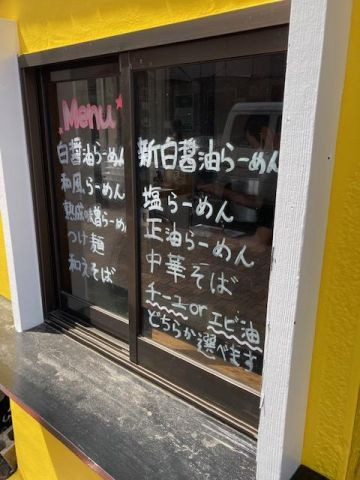 Menu
白醤油らーめん
和風らーめん
熟成味噌らーめん
つけ麺
和えそば
新白醤油らーめん
塩らーめん
正油らーめん
中華そば
チー油 or エビ油
どちらか選べます